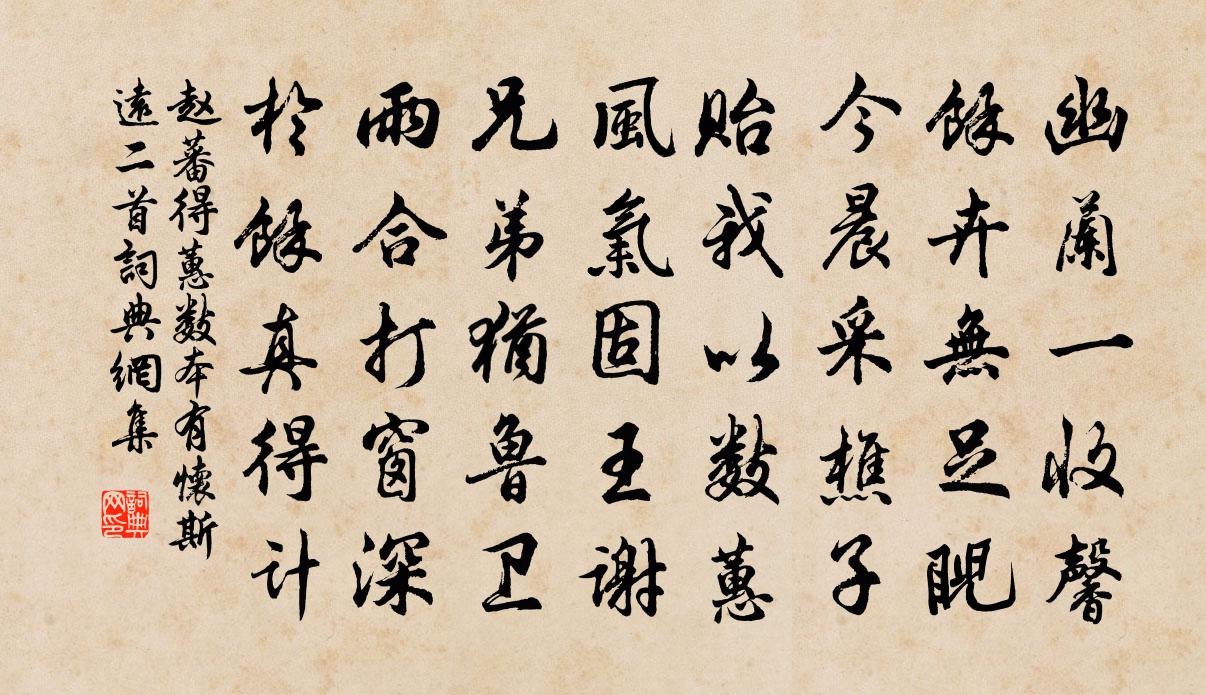 幽蘭一收馨
餘卉無足睨
今晨采樵子
貽我以數蕙
風氣固王謝
兄弟猶魯卫
雨合打窗深
於餘真得计
赵蕃得蕙數本有懷斯
遠二首詞典網集
詞典网印